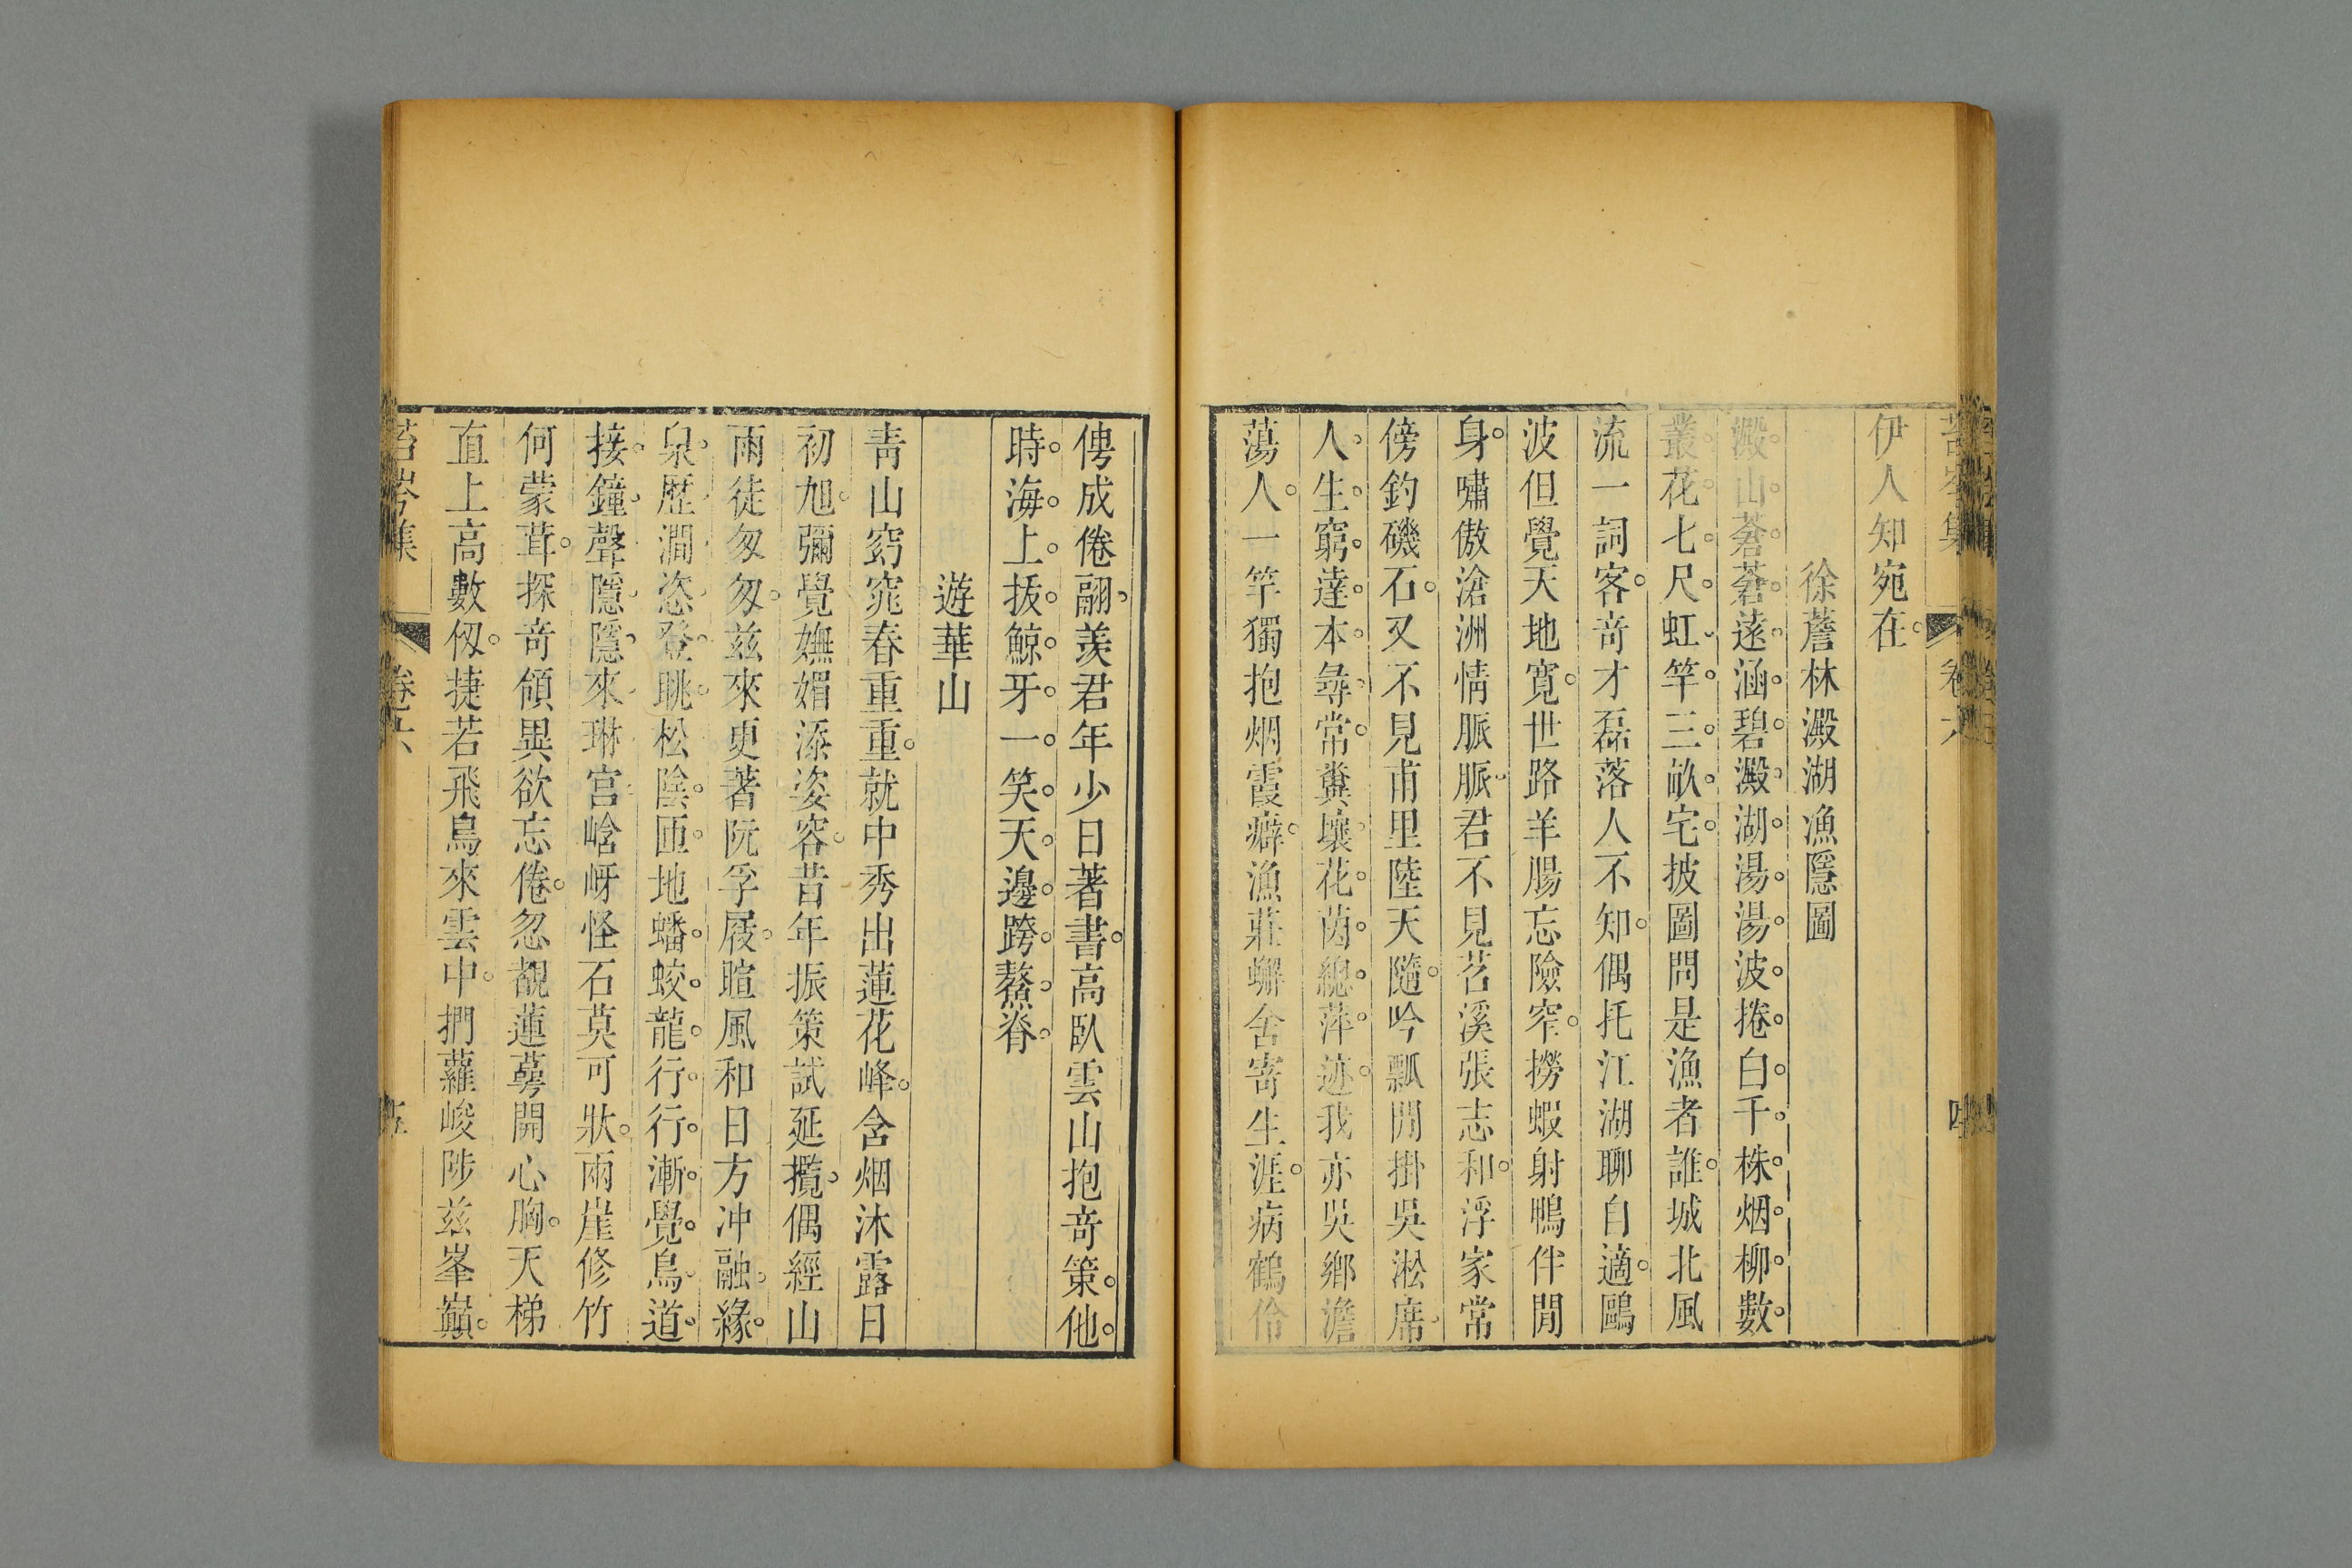 苔岑集 卷六 四
伊人知宛在
徐薝林澱湖漁隱圖
澱山蒼蒼遠涵碧澱湖湯湯波捲白千株烟柳數
叢花七尺虹竿三畝宅披圖問是漁者誰城北風
流一詞客竒才磊落人不知偶托江湖聊自適鷗
波但覺天地寛世路羊腸忘險窄撈蝦射鴨伴閒
身嘯傲滄洲情脈脈君不見苕溪張志和浮家常
傍釣磯石又不見甫里陸天隨吟瓢閒掛吳淞席
人生窮達本尋常糞壤花茵總萍迹我亦吳鄉澹
蕩人一竿獨抱烟霞癖漁莊蠏舍寄生涯病鶴伶
俜成倦翮羨君年少日著書高臥雲山抱竒策他
時海上拔鯨牙一笑天邊跨鰲脊
遊華山
靑山窈窕春重重就中秀出蓮花峰含烟沐露日
初旭彌覺嫵媚添姿容昔年振策試延攬偶經山
雨徒匆匆茲來更著阮孚屐暄風和日方冲融緣
泉歷澗恣登眺松陰匝地蟠蛟龍行行漸覺鳥道
接鐘聲隱隱來琳宫峆岈怪石莫可狀兩崖修竹
何蒙茸探竒領異欲忘倦忽覩蓮蕚開心胸天梯
直上高數仭捷若飛鳥來雲中捫蘿峻陟茲峯巔
苔岑集 卷六 五